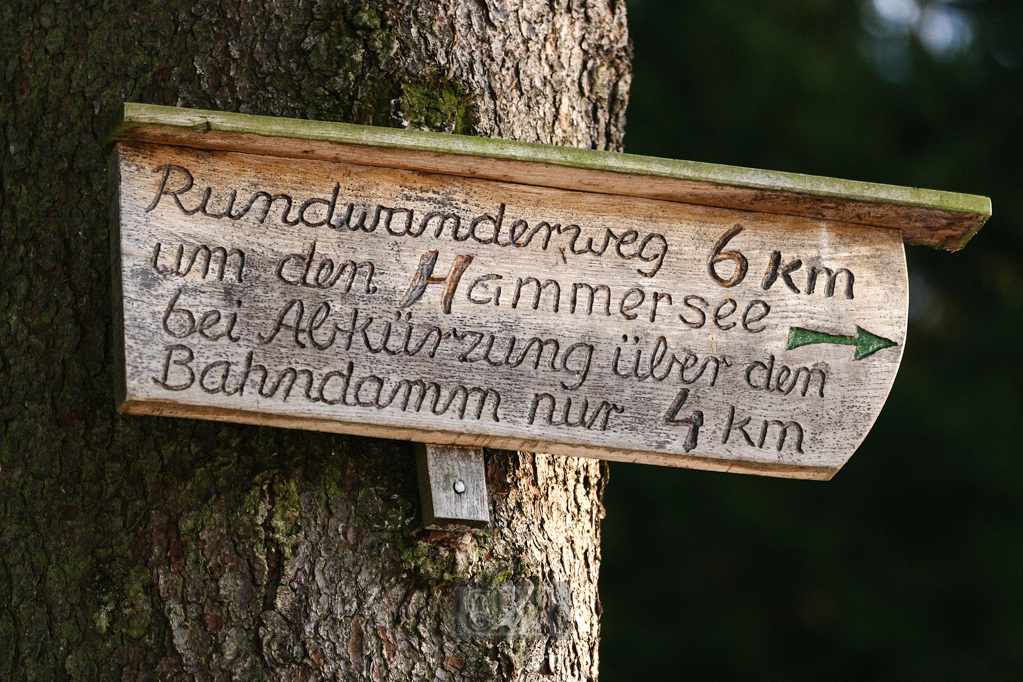 Rundwanderweg 6 km
um den Hammersee
bei Abkürzung über den
Bahndamm nur 4 km